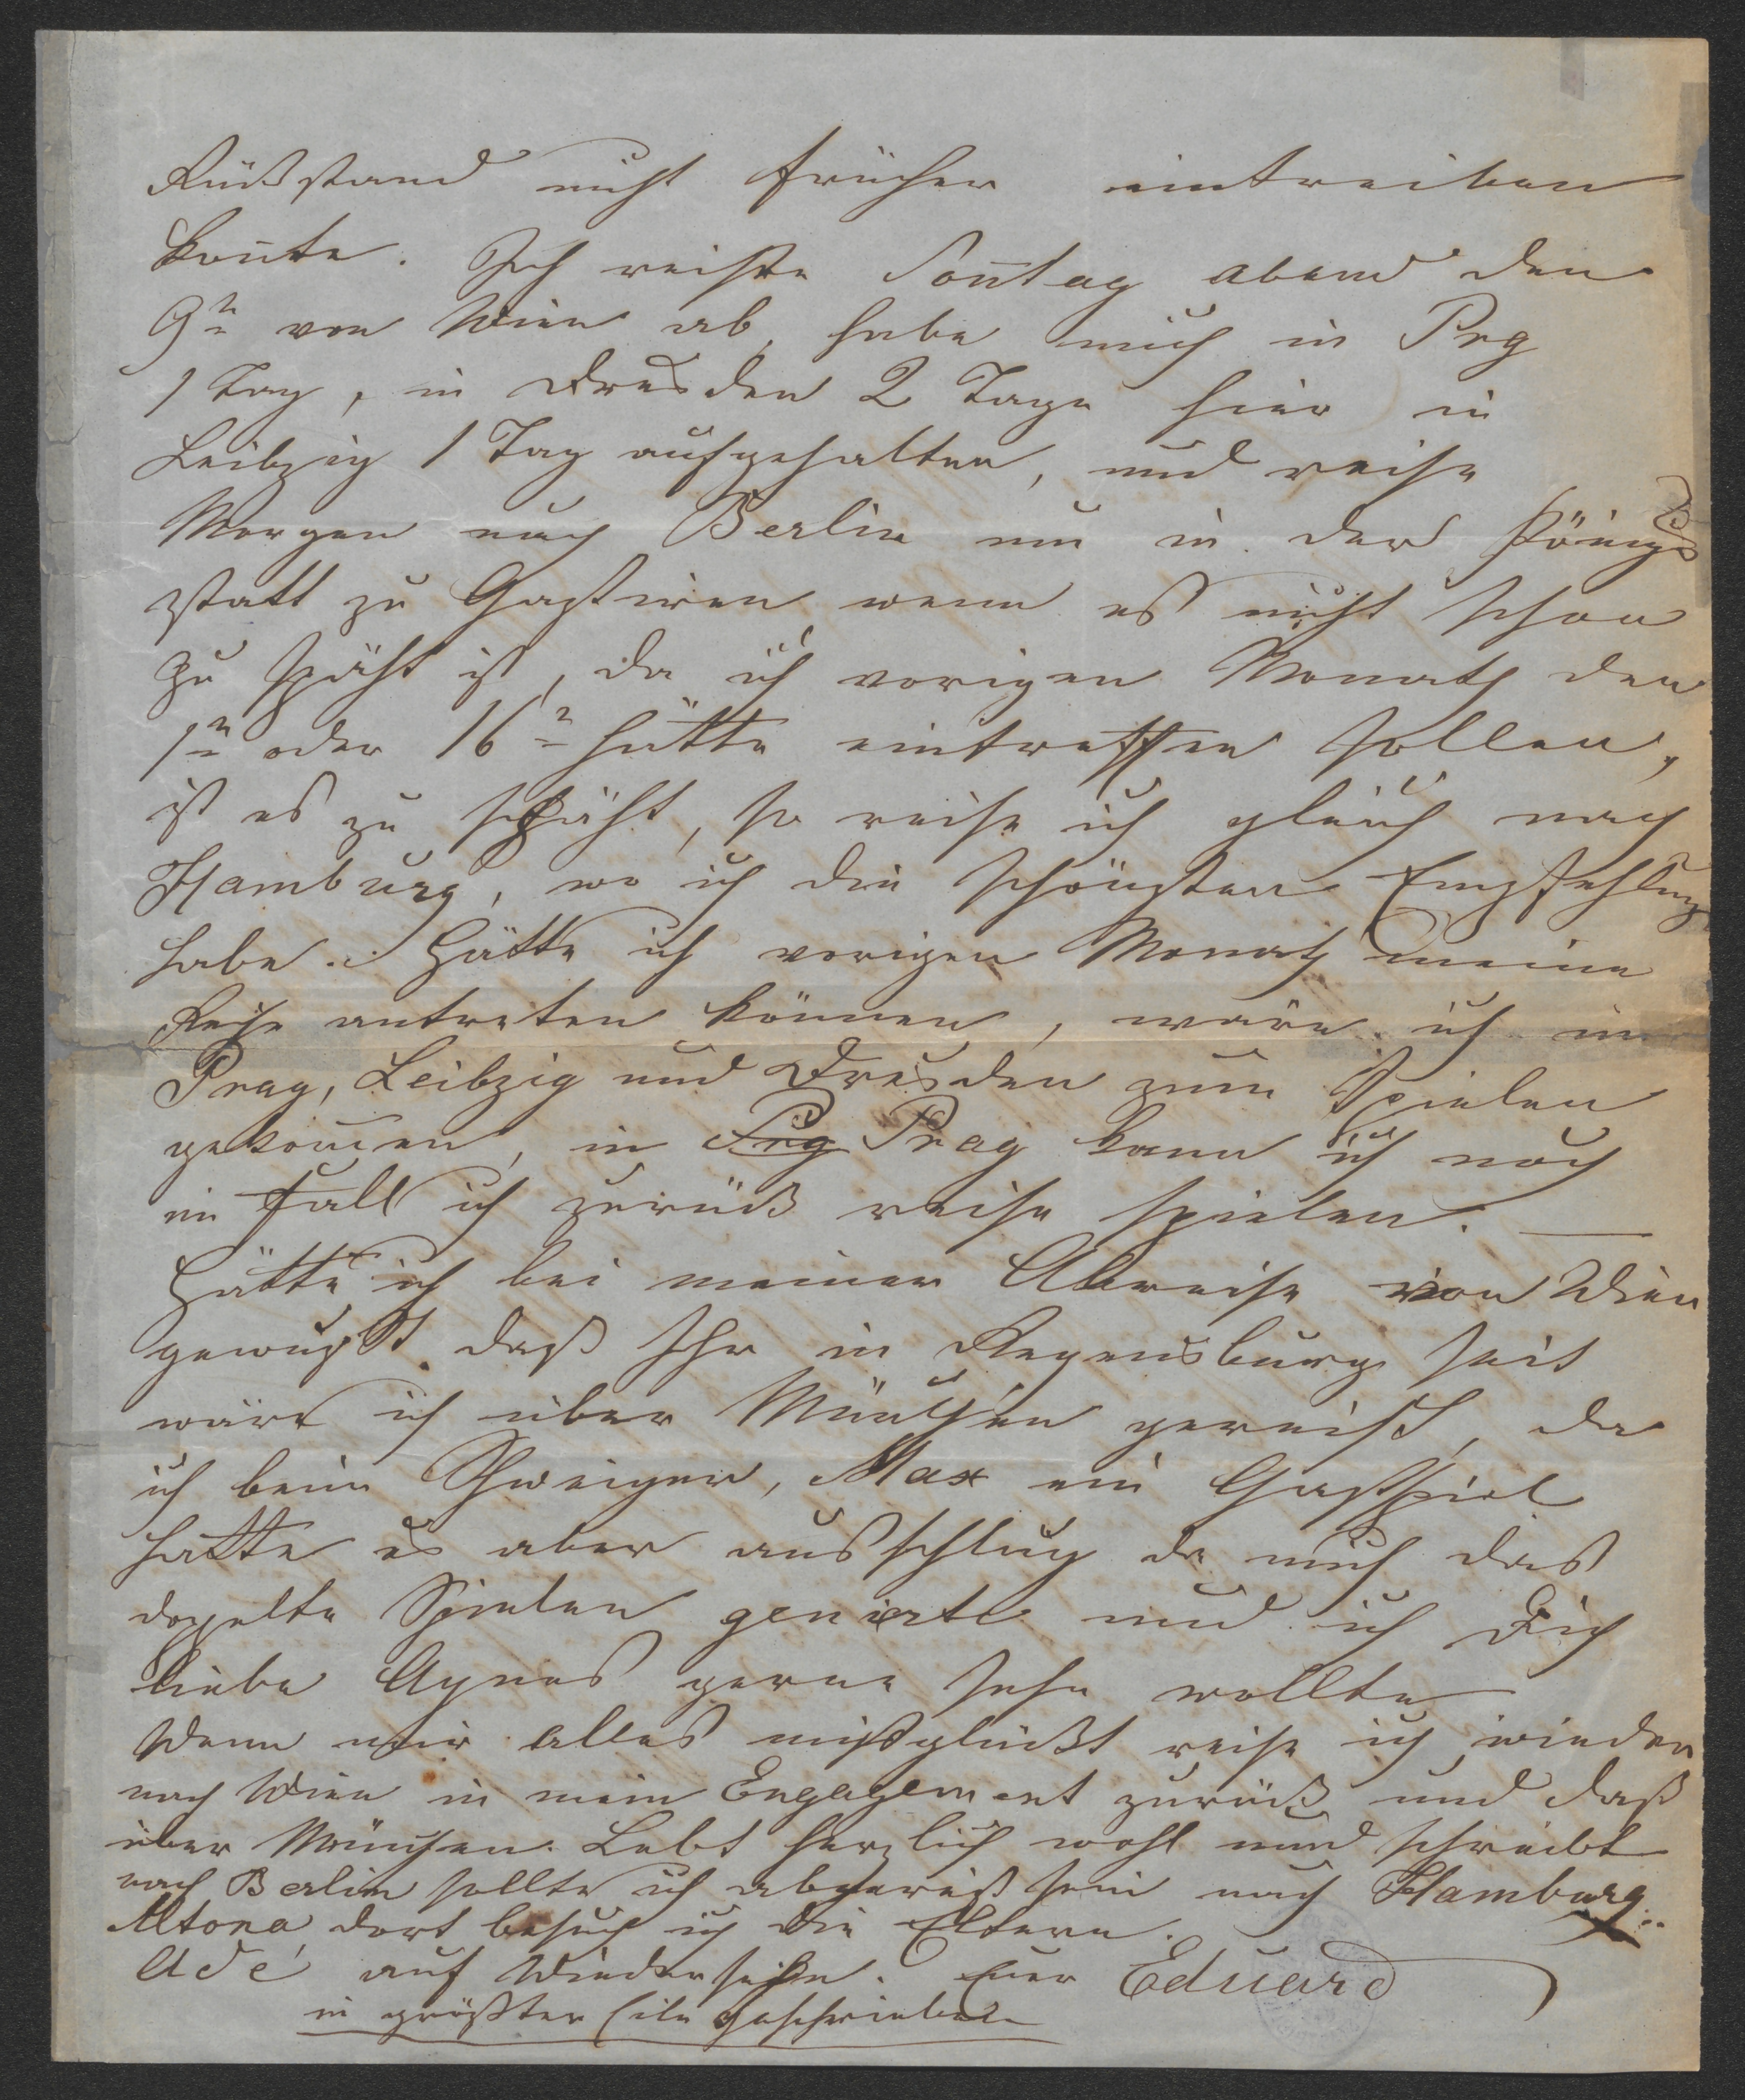 Rückstand nicht früher eintreiben
konnte. Ich reiste Sonntag abend den
9n von Wien ab, habe mich in Prg
1 Tag, in Dresden 2 Tage hier in
Leibzig 1 Tag aufgehalten, und reise
Morgen nach Berlin um in der Königs
statt zu Gastiren wenn es nicht schon
zu späht ist, da ich vorigen Monath den
1n oder 16n hätte eintreffen sollen,
ist es zu späht, so reise ich gleich nach
Hamburg, wo ich die schönsten Empfehlung
habe. Hätte ich vorigen Monath meine
Reise antreten können, wäre ich in
Prag, Leibzig und Dresden zum Spielen
gekommen, in Prg Prag kann ich noch
im Fall ich zurück reise spielen. —
Hätte ich bei meiner Abreise von Wien
gewußt daß Ihr in Regensburg seit
wäre ich über München gereist, da
ich beim Schweiger, Max ein Gastspiel
hatte es aber ausschlug da mich das
doppelte Spielen genierte und ich Dich
liebe Agnes gerne sehn wollte
Wenn mir alles mißglückt reise ich wieder
nach Wien in mein Engagement zurück und daß
über München. Lebt herzlich wohl und schreibt
nach Berlin sollte ich abgereist sein nach Hamburg
Altona dort besuch ich die Eltern.
Adé auf Wiedersehen. Euer Eduard
in größter Eile geschrieben